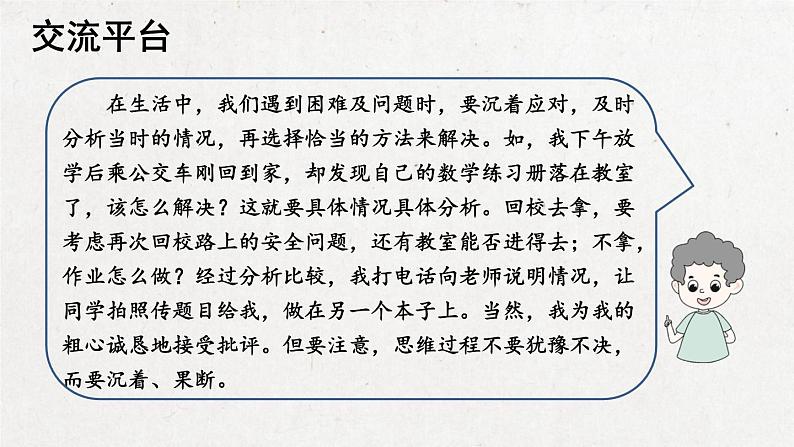 交流平台
在生活中，我们遇到困难及问题时，要沉着应对，及时
分析当时的情况，再选择恰当的方法来解决。如，我下午放
学后乘公交车刚回到家，却发现自己的数学练习册落在教室
了，该怎么解决？这就要具体情况具体分析。回校去拿，要
考虑再次回校路上的安全问题，还有教室能否进得去；不拿，
作业怎么做？经过分析比较，我打电话向老师说明情况，让
同学拍照传题目给我，做在另一个本子上。当然，我为我的
粗心诚恳地接受批评。但要注意，思维过程不要犹豫不决，
而要沉着、果断。